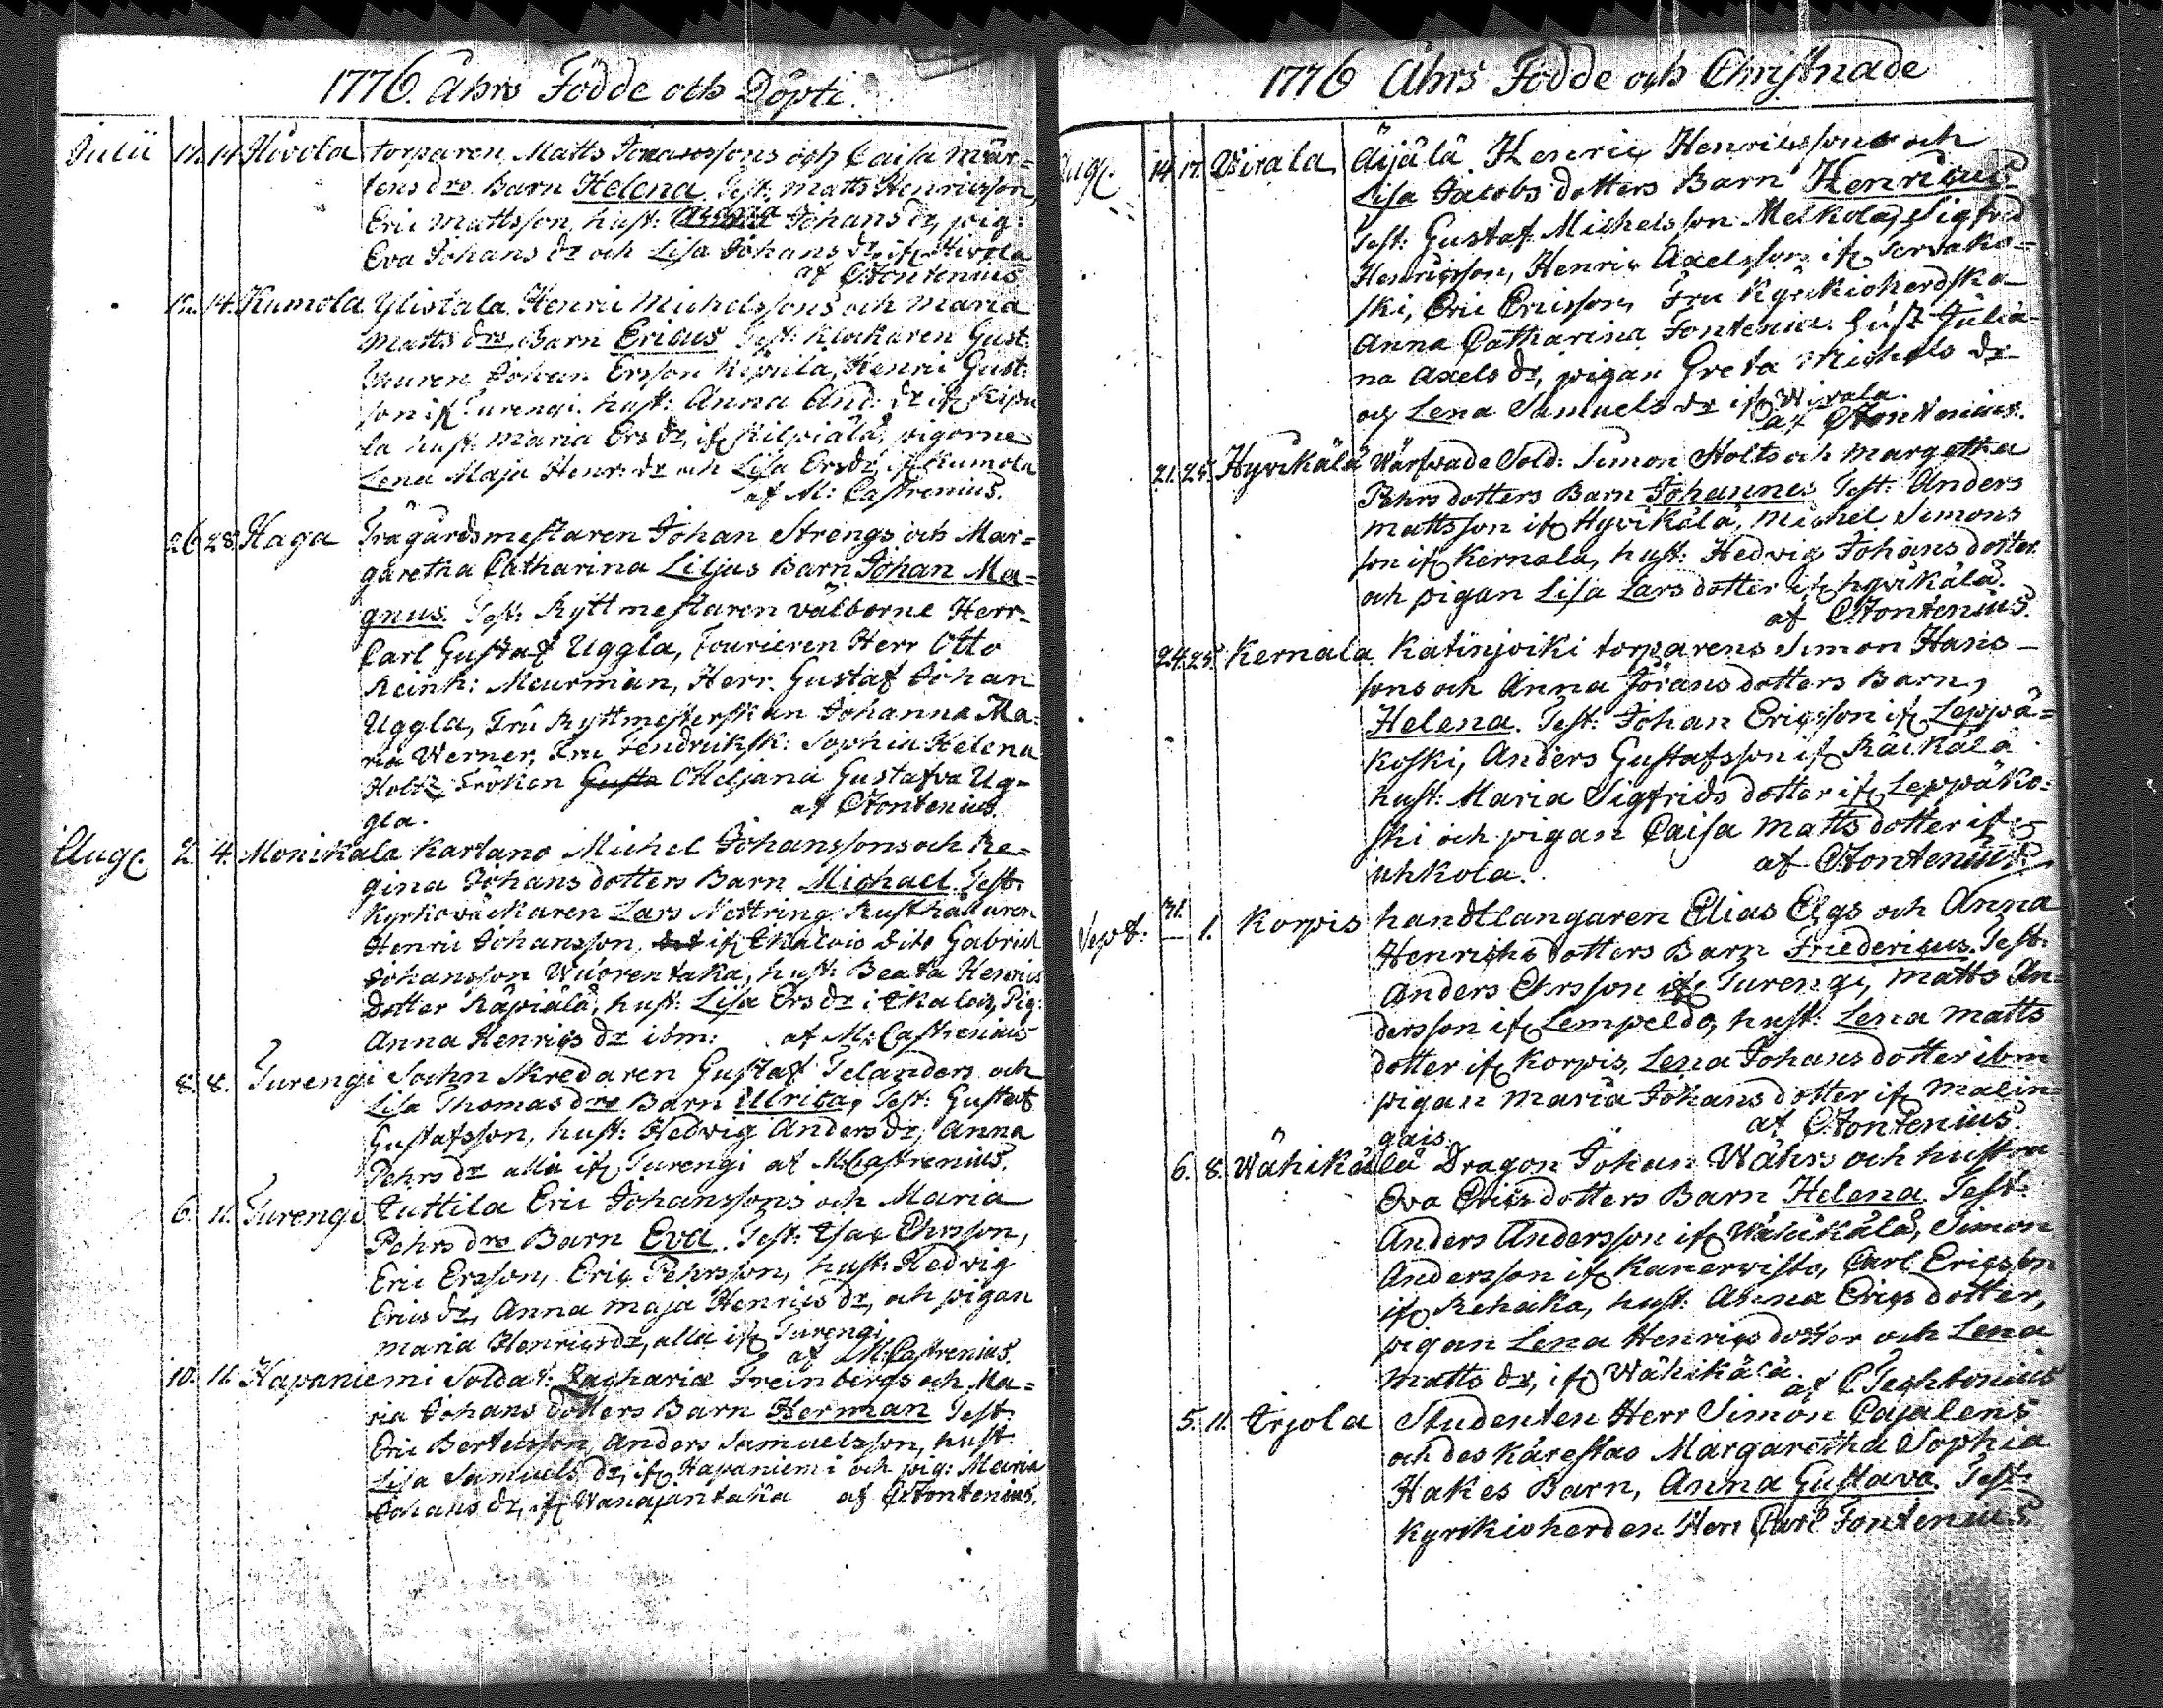 1776. Åhrs Födde och Döpte.
Julii 12. 14. Hivola torparen Matts Tomassons och Caisa Mår=
tens drs Barn Helena. Test: Matts Henricsson,
Eric Mattsson, hust: Maria Johans dr, pig:
Eva Johans dr och Lisa Johans dr, if. Hivola
af C Fontenius
12. 14. Kumola Ylistala Henric Michelssons och Maria
Matts drs, Barn Ericus Test: Klockaren Gust.
Johan Ersson Kipuila, Henric Gust:
son if. Turengi. hust: Anna And: dr if. Kipu
la hust. Maria Ers dr, if. Kilpiälä, pigorne
Lena Maja Henr: dr och Lisa Ersdr, if. Kumola
af M: Castrenius.
26. 28. Haga Trägårdsmestaren Johan Strengs och Mar=
garetha Catharina Liljas Barn Johan Ma=
gnus. Test: Ryttmestaren välborne Herr
Carl Gustaf Uggla, Fourieren Herr Otto
Reinh: Meurman, Herr Gustaf Johan
Uggla, Fru Ryttmesterskan Johanna Ma=
ria Werner, Fru Fendriksk: Sophia Helena
Holtz, Fröken Gusta Heljana Gustafva Ug=
gla. af C Fontenius.
Aug. 2. 4. Monikala Kartano Michel Johanssons och Re=
gina Johans dotters Barn Michael. Test:
Kyrkoväckaren Lars Nostring, Rusthållaren
Henric Johansson, if. Dito Gabriel
Johansson Wuorentaka, hust: Beata Henrics
dotter Räpiälä, hust: Lisa Ers dr i Pig:
Anna Henrics dr ibm: af M: Castrenius
8. 8. Turengi Sochn Skredaren Gustaf Telanders och
Lisa Thomas drs Barn Ulrica, Test: Gustaf
Gustafsson, hust: Hedvig Anders dr, Anna
Pehrs dr alla if. Turengi af M: Castrenius.
6. 11. Turengi Tuttila Eric Johanssons och Maria
Pehrs drs Barn Eva. Test: Isac Ehrsson,
Eric Ersson, Eric Pehrsson, hust: Hedvig
Erics dr, Anna Maja Henrics dr, och pigan
Maria Henricsdr, alla if. Turengi
af M: Castrenius.
10. 11. Hapaniemi Soldat: Zachariæ Freinbergs och Ma=
ria Johans dotters Barn Herman Test:
Eric Bertelsson, Anders Samuelsson, hust:
Lisa Samuels dr, if. Hapaniemi och pig: Maria
Johans dr, if. Wanajantaka af C Fontenius.
1776 Åhrs Födde och Christnade
Aug. 14. 17. Wirala Äijälä Henric Henricssons och
Lisa Jacobs dotters Barn Henricus
Test: Gustaf Michelsson Melkola, Sigfrid
Henricsson, Henric Axelsson if. Tervako=
ski, Eric Ericsson, Fru Kyrkioherdska
Anna Catharina Fontenia. hust Julia=
na Axels dr, pigan Greta Michels dr
och Lena Samuels dr if. Wirala.
af C Fontenius.
21. 25. Hyvikälä Wärfvade Sold: Simon Holts och Margetha
Pehrs dotters Barn Johannes. Test: Anders
Mattsson if. Hyvikälä, Michel Simons
son if. Kernala, hust: Hedvig Johans dotter
och pigan Lisa Lars dotter if. hyvikälä.
af C Fontenius.
24. 25. Kernala Katinjoiki torparens Simon Hans
sons och Anna Jörans dotters Barn,
Helena. Test: Johan Ericsson if. Leppä=
koski, Anders Gustafsson if. Räikälä
hust: Maria Sigfrids dotter if. Leppäko=
ski och pigan Caisa Matts dotter if.
uhkola. af C Fontenius
Sept. 31. 1. Korpis handtlangaren Elias Elgs och Anna
Henrichs dotters Barn Friedericus. Test:
Anders Ehrsson if. Turengi, Matts An=
dersson if. Lempeldo, hust: Lena Matts
dotter if. Korpis, Lena Johans dotter ibm
pigan Maria Johans dotter if. Malin=
gais. af C Fontenius.
6. 8. Wähikälä Dragon Johan Währs och hustru
Eva Erics dotters Barn Helena. Test:
Anders Andersson if. Wähikälä, Simon
Andersson if. Kanervisto, Carl Ericsson
if. Rehaka, hust: Anna Erics dotter,
pigan Lena Henrics dotter och Lena
Matts dr, if. Wähikälä.
af C Techtonius
5. 11. Erjola Studenten Herr Simon Cajalens
och des kärestas Margaretha Sophia
Hakes Barn, Anna Gustava. Test:
Kyrkioherden Herr Carl Fontenius.